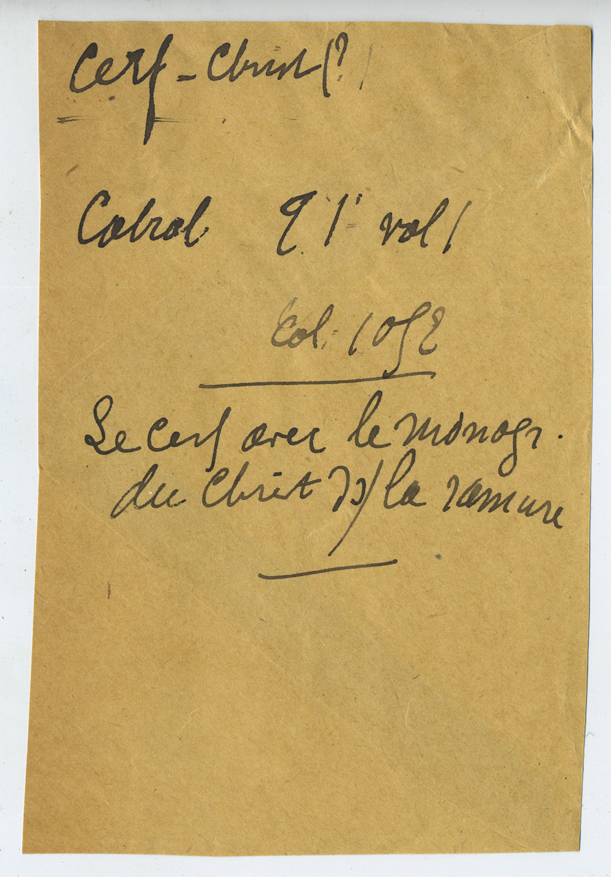 Cerf - Christ (?)
Cabrol vol 1
Col. 1052
Le cerf avec le monogr.
du Christ ds la ramure